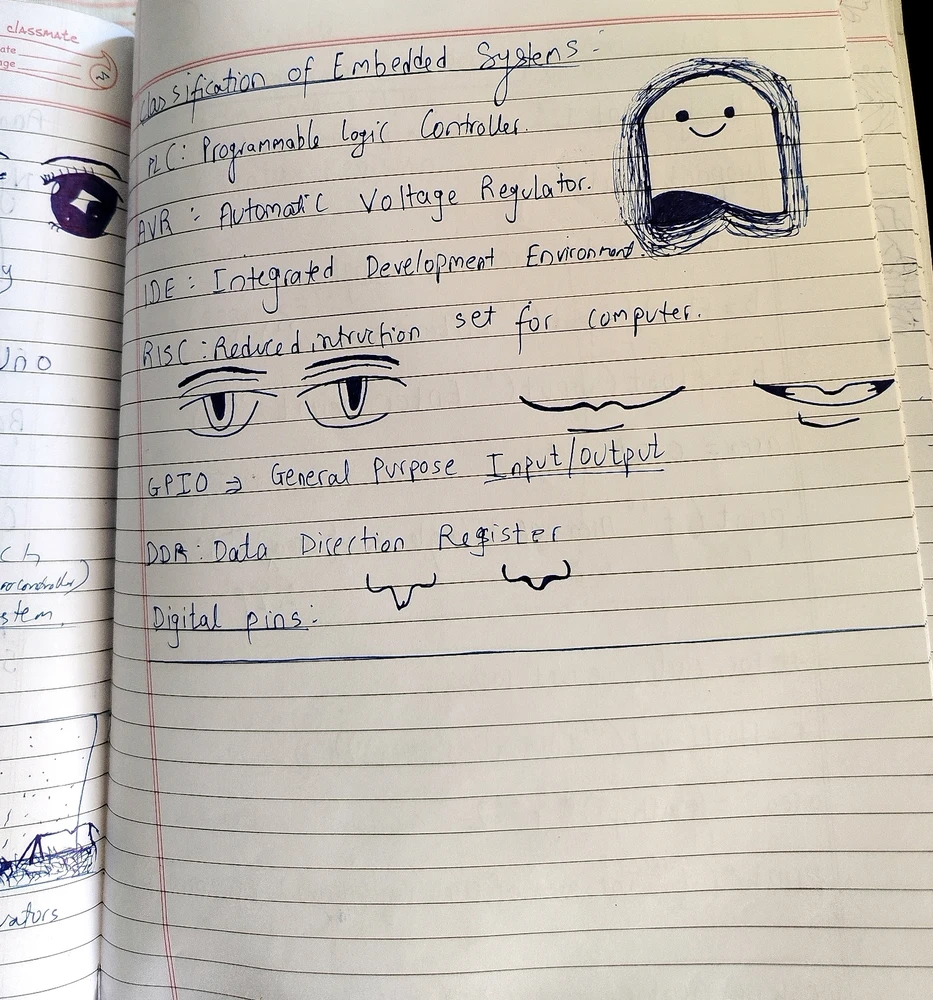 classmate
ate
age
Classification of Embedded Systems :-
PLC : Programmable Logic Controller.
AVR : Automatic Voltage Regulator.
IDE : Integrated Development Environment.
RISC : Reduced intruction set for computer.
GPIO → General Purpose Input/Output
DDR : Data Direction Register
Digital pins :
y
Uno
ch
rocontroller)
stem.
vators